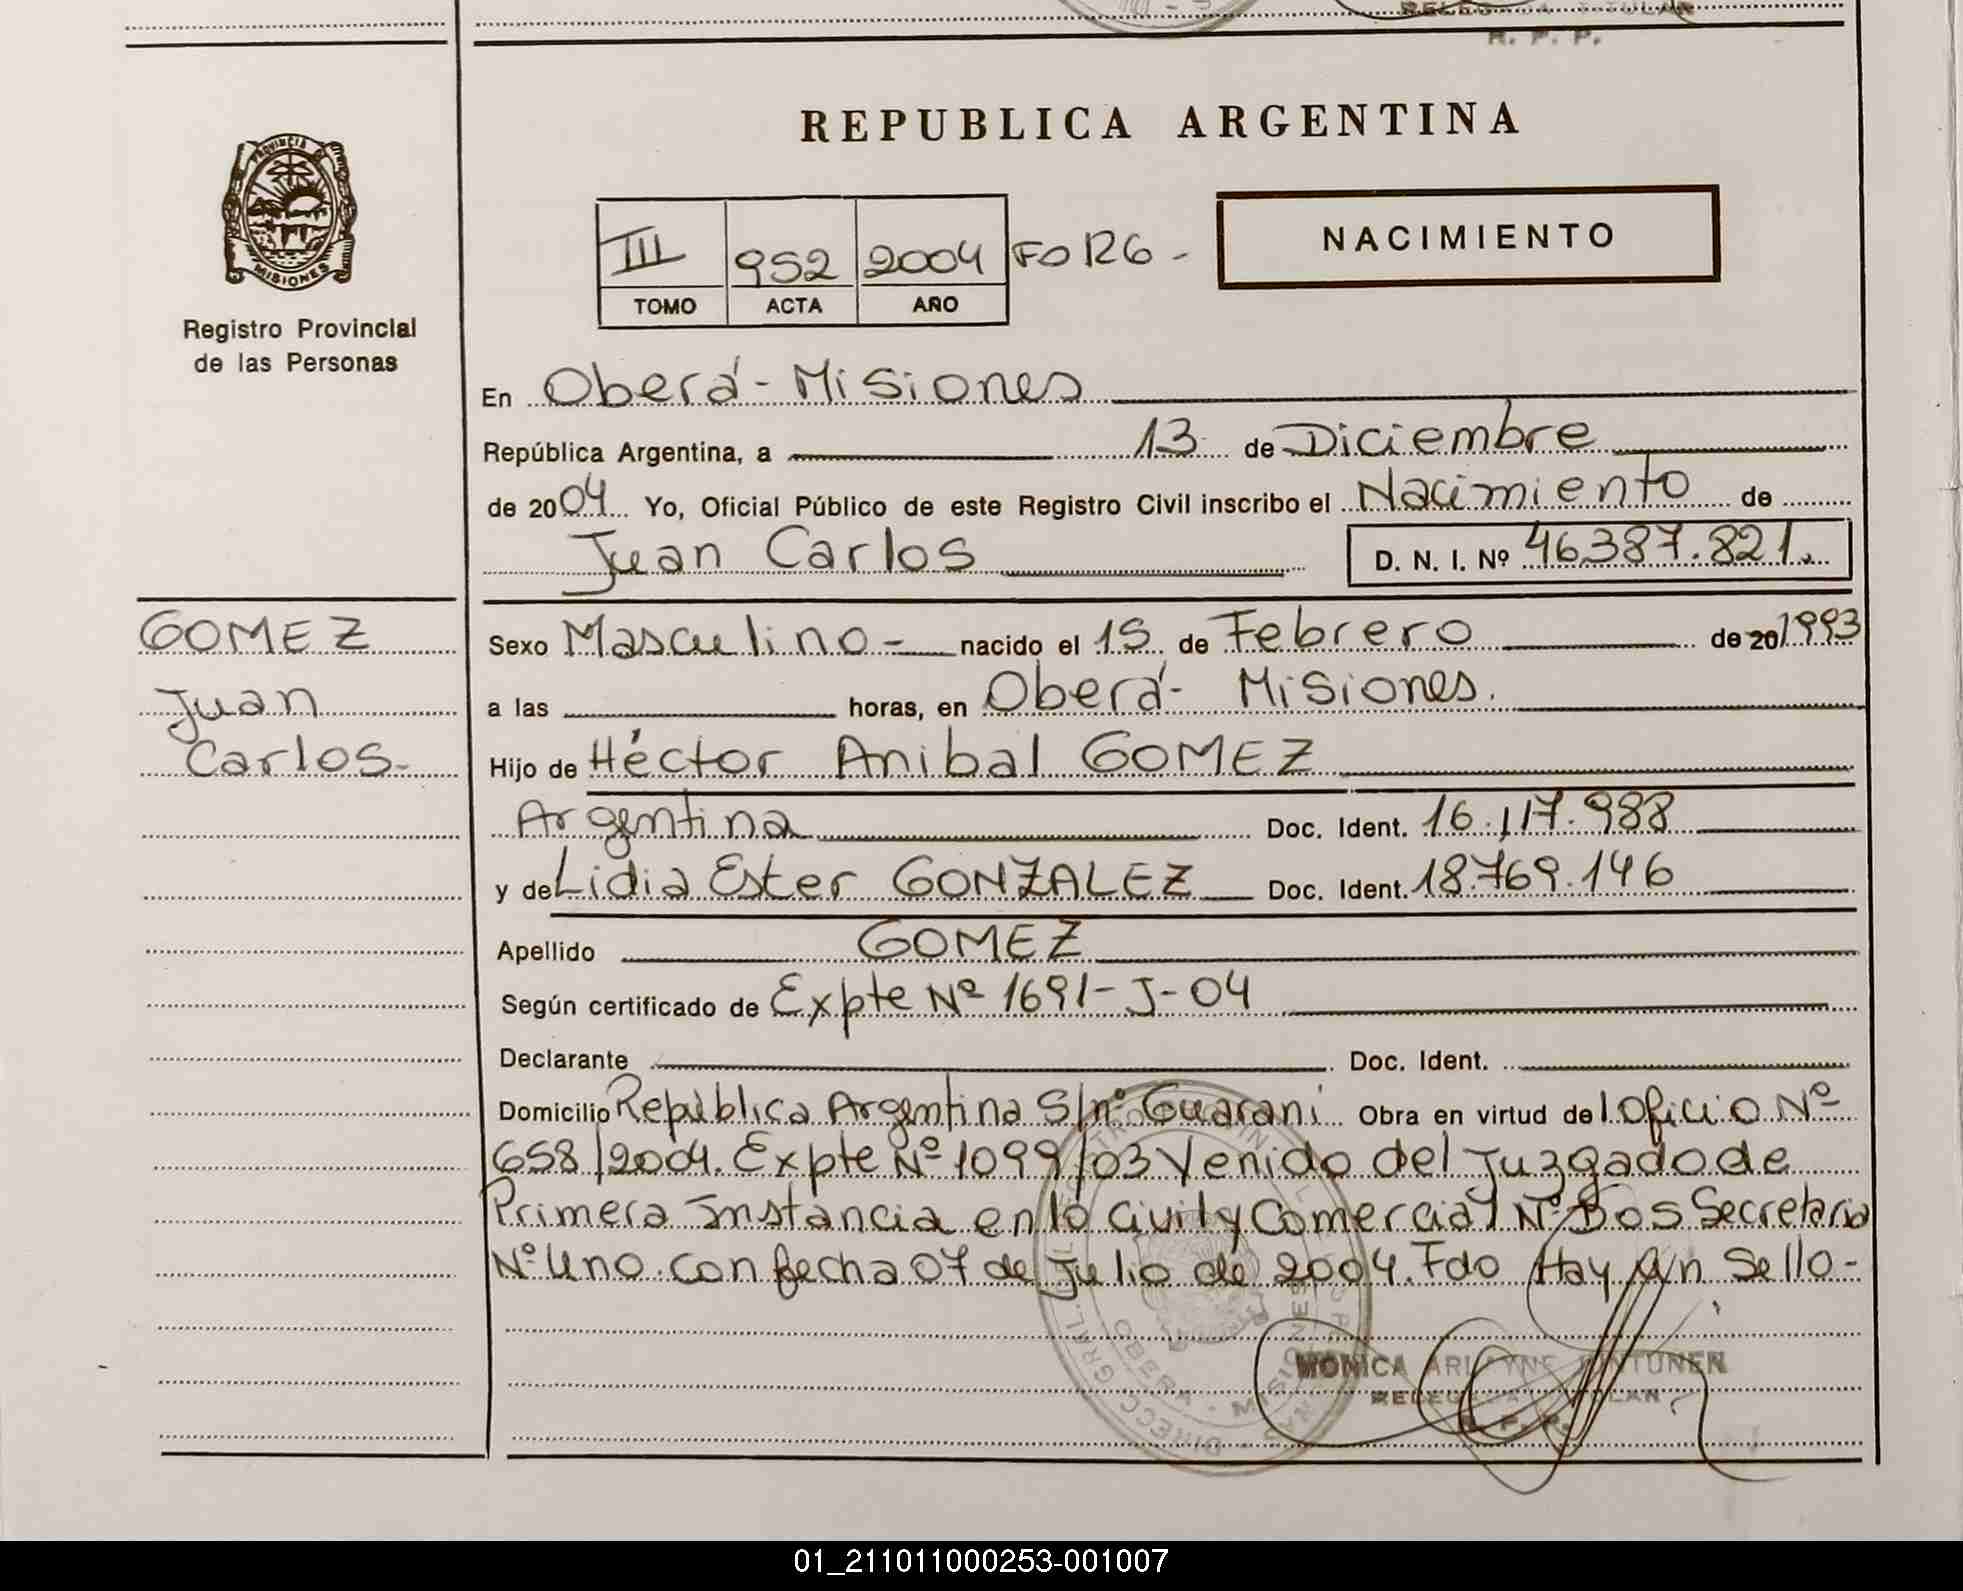 R. P. P.
REPUBLICA ARGENTINA
PROVINCIA DE
MISIONES
Registro Provincial
de las Personas
III 952 2004 Fº 126 -
TOMO ACTA AÑO
NACIMIENTO
En Oberá - Misiones
República Argentina, a 13 de Diciembre
de 2004 Yo, Oficial Público de este Registro Civil inscribo el Nacimiento de
Juan Carlos D. N. I. Nº 46.387.821.
GOMEZ
Juan
Carlos-
Sexo Masculino - nacido el 15 de Febrero de 20 1993
a las horas, en Oberá - Misiones.
Hijo de Héctor Anibal GOMEZ
Argentina Doc. Ident. 16.117.988
y de Lidia Ester GONZALEZ Doc. Ident. 18.769.146
Apellido GOMEZ
Según certificado de Expte Nº 1691-J-04
Declarante Doc. Ident.
Domicilio República Argentina S/nº Guaraní Obra en virtud del Oficio Nº
658/2004. Expte Nº 1099/03 Venido del Juzgado de
Primera Instancia en lo Civil y Comercial Nº Dos Secretaria
Nº Uno. con fecha 07 de Julio de 2004. Fdo Hay un Sello-
MONICA
R. P. P.
01_211011000253-001007